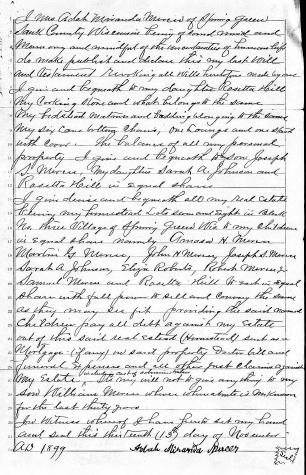 I Mrs Adah Miranda Mercer of Spring Green
Sauk County Wisconsin being of sound mind and
Memory and mindful of the uncertainties of human life
do make publish and declare this my last Will
and Testament Revoking all Wills heretofore made by me
I give and bequeath to my daughter Rosetta Hill
My Cooking Stove and what belongs to the same
My Bedstead Matress and Bedding belonging to the same
My six Cane bottom Chairs, one Lounge and one stand
with cover. The balance of all my personal
property I give and bequeath to son Joseph
S. Mercer, My daughters Sarah A. Johnson and
Rosetta Hill in equal shares
I give devise and bequeath all my real estate
being my homestead Lots seven and Eight in Block
No. three Village of Spring Green Wis to my children
in equal share namely Amass H Mercer
Martin G. Mercer, John H Mercer, Joseph S. Mercer
Sarah A Johnson, Eliza Roberts, Robert Mercer
Samuel Mercer and Rosetta Hill to each in equal
share with full power to sell and convey the same
as they may see fit providing the said named
Children pay all debt against my Estate
out of this said real estate (Homestead) such as
Mortgage (if any) on said property Doctor bill and
funeral expenses and all other just claims against
My Estate. It is my will not to give anything to my
son William Mercer whose whereabouts is unknown
for the last thirty years
In Witness whereof I have hereto set my hand
and seal this thirteenth (13th) day of November
AD 1899 Adah Miranda Mercer
Seal